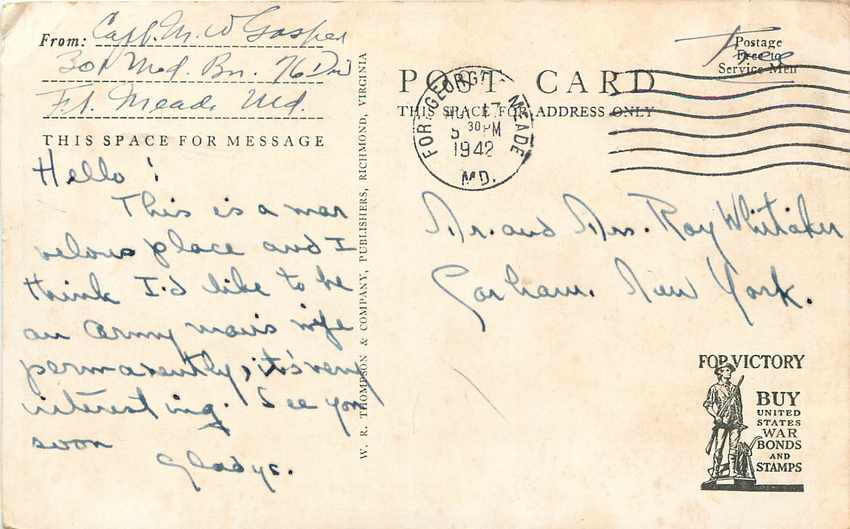 From: Capt. M. W. Gasper
301 Med. Bn. 76 Div
Ft. Meade Md.
THIS SPACE FOR MESSAGE
Hello!
This is a mar
velous place and I
think I'd like to be
an army man's wife
permanently, it's very
interesting. See you
soon
Gladys.
W. R. THOMPSON & COMPANY, PUBLISHERS, RICHMOND, VIRGINIA
POST CARD
THIS SPACE FOR ADDRESS ONLY
FORT GEORGE MEADE
17
5 30 PM
1942
MD.
Free
Postage
Free to
Service Men
Mr. and Mrs. Roy Whitaker
Gorham. New York.
FOR VICTORY
BUY
UNITED
STATES
WAR
BONDS
AND
STAMPS